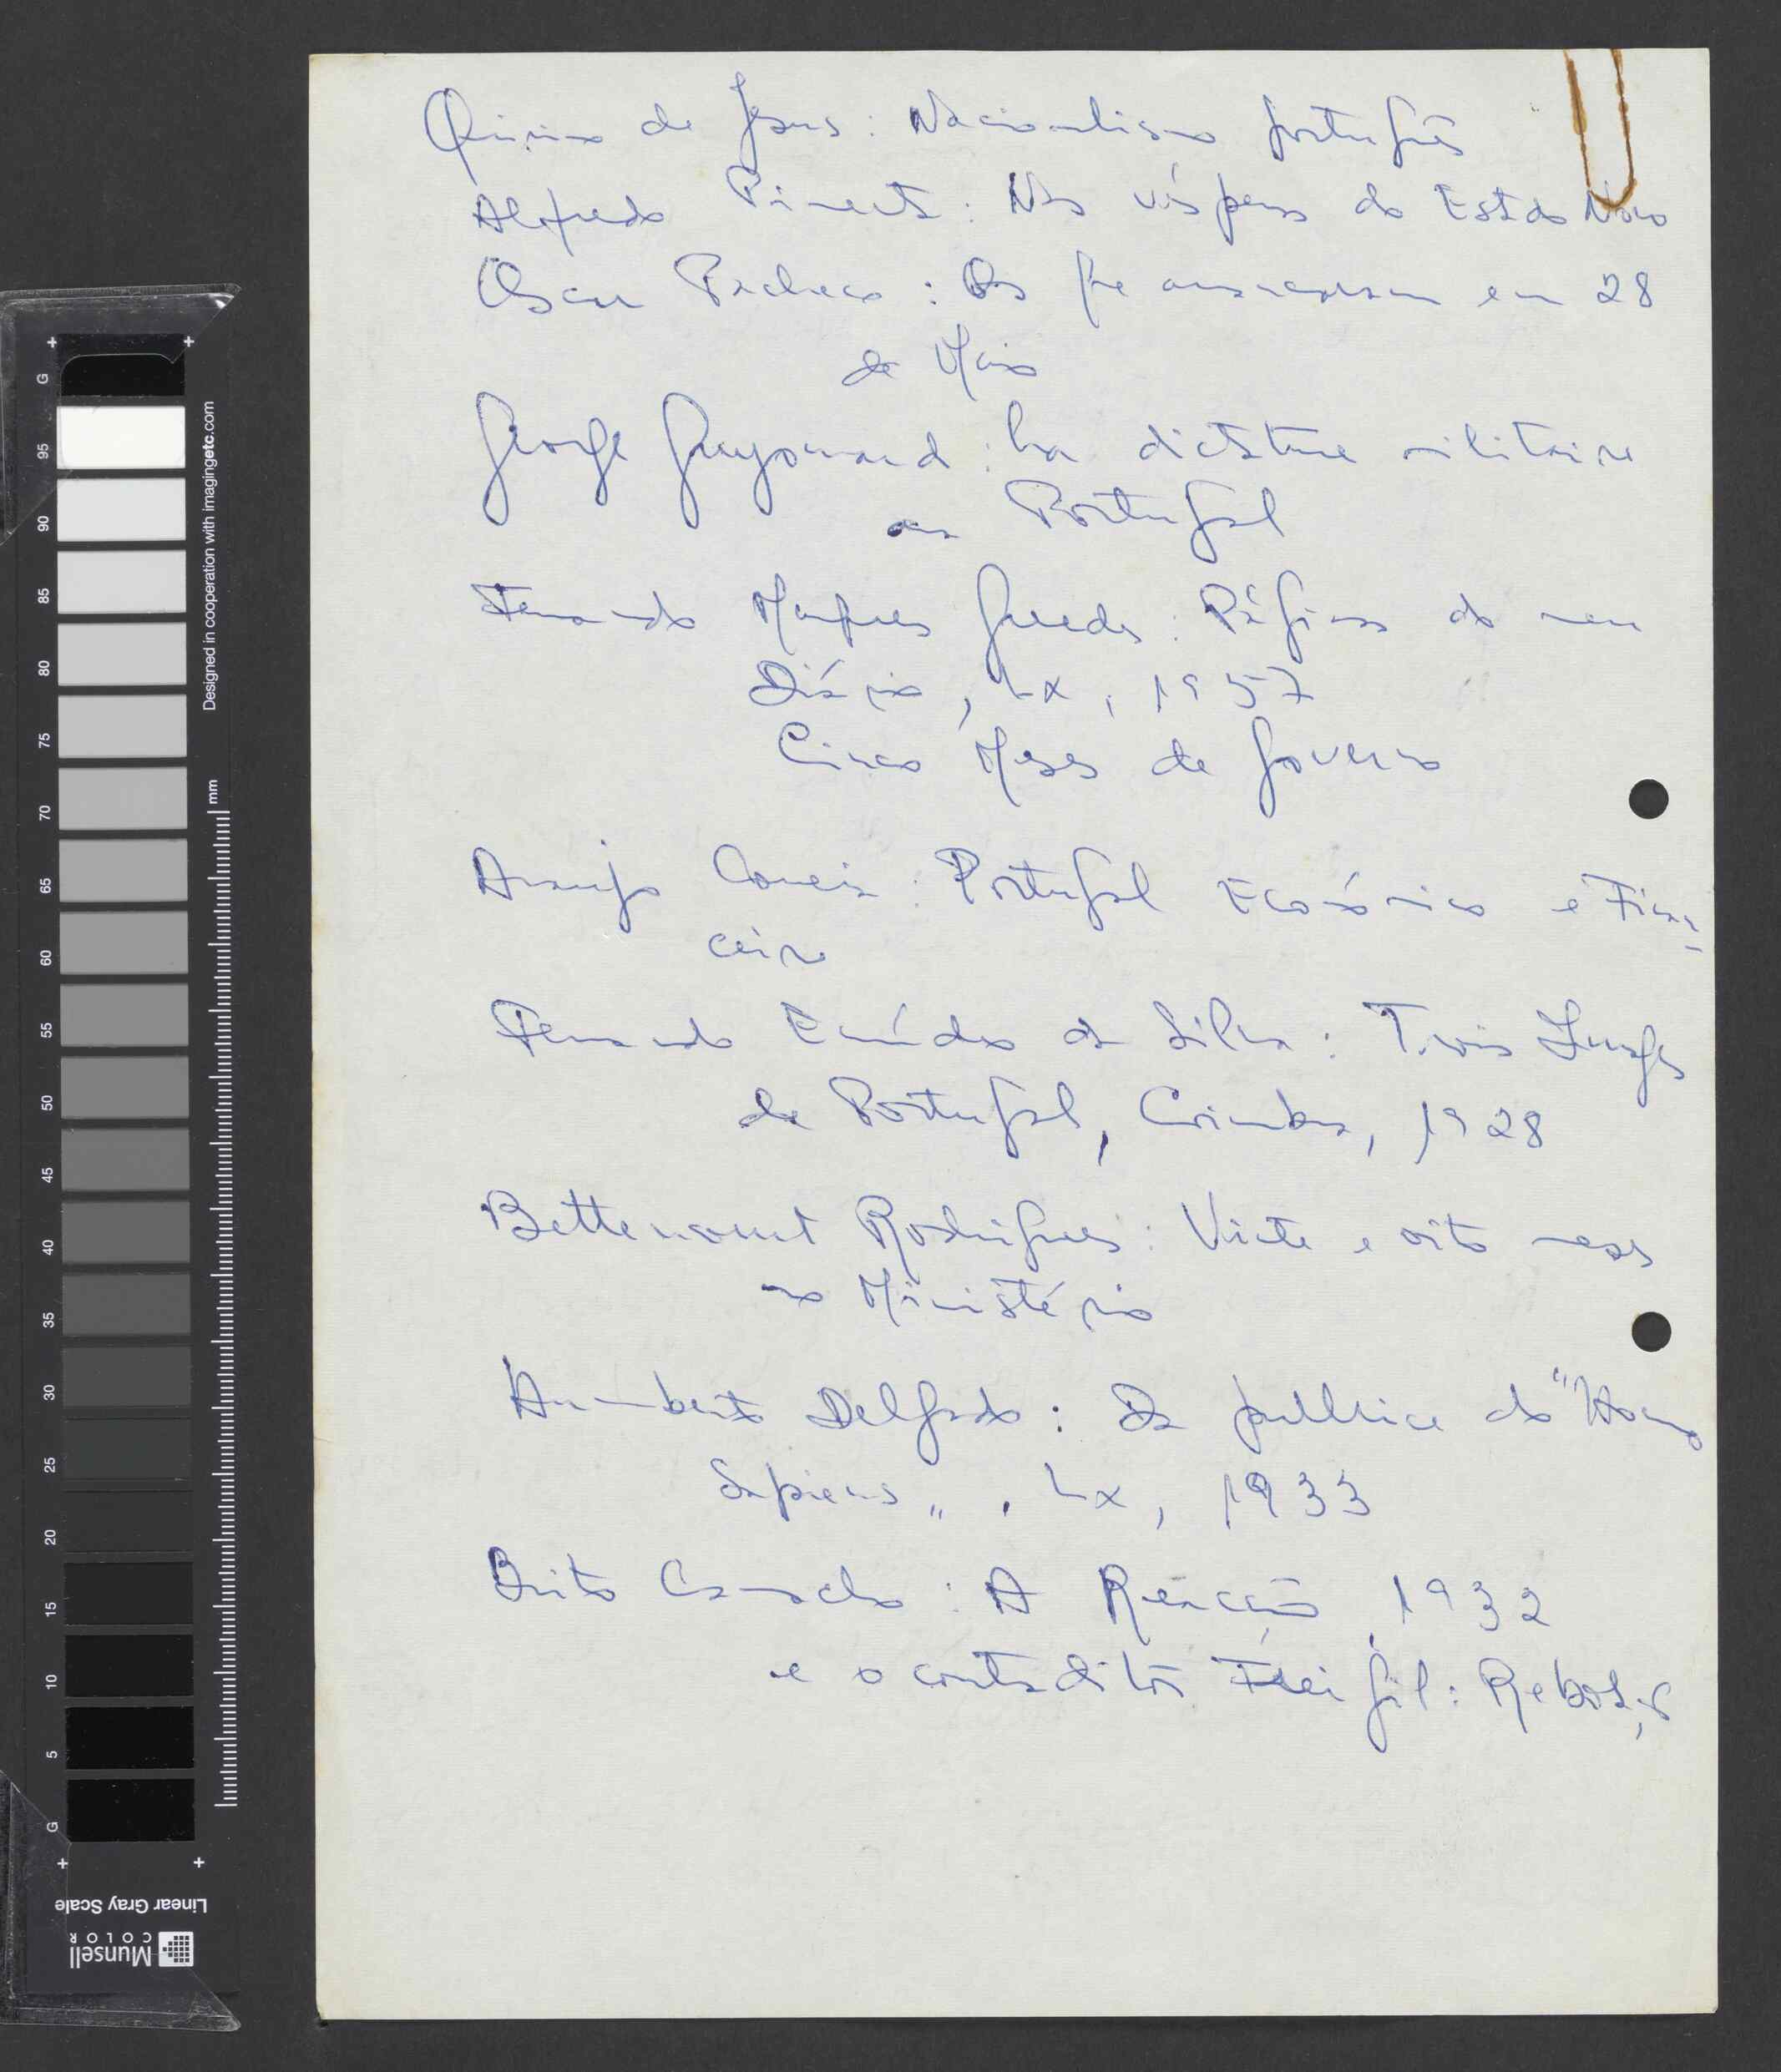 Quirino de Jesus: Nacionalismo português
Alfredo Pimenta: Nas vésperas do Estado Novo
Oscar Pacheco: Os que arrancaram em 28
de Maio
George Guyomard: La dictature militaire
au Portugal
Fernando Marques Guedes: Páginas do meu
Diário, Lx, 1957
Cinco Meses de Governo
Araujo Correia: Portugal Económico e Finan-
ceiro
Fernando Emídio da Silva: Trois Images
de Portugal, Coimbra, 1928
Bettencourt Rodrigues: Vinte e oito meses
no Ministério
Humberto Delgado: Da pulhice do "Homo
Sapiens", Lx, 1933
Brito Camacho: A Reacção, 1932
e o contraditor Frei Gil:
G 95 90 85 80 75 70 65 60 55 50 45 40 35 30 25 20 15 10 5 G
Designed in cooperation with imagingetc.com
mm
Linear Gray Scale
Munsell
COLOR